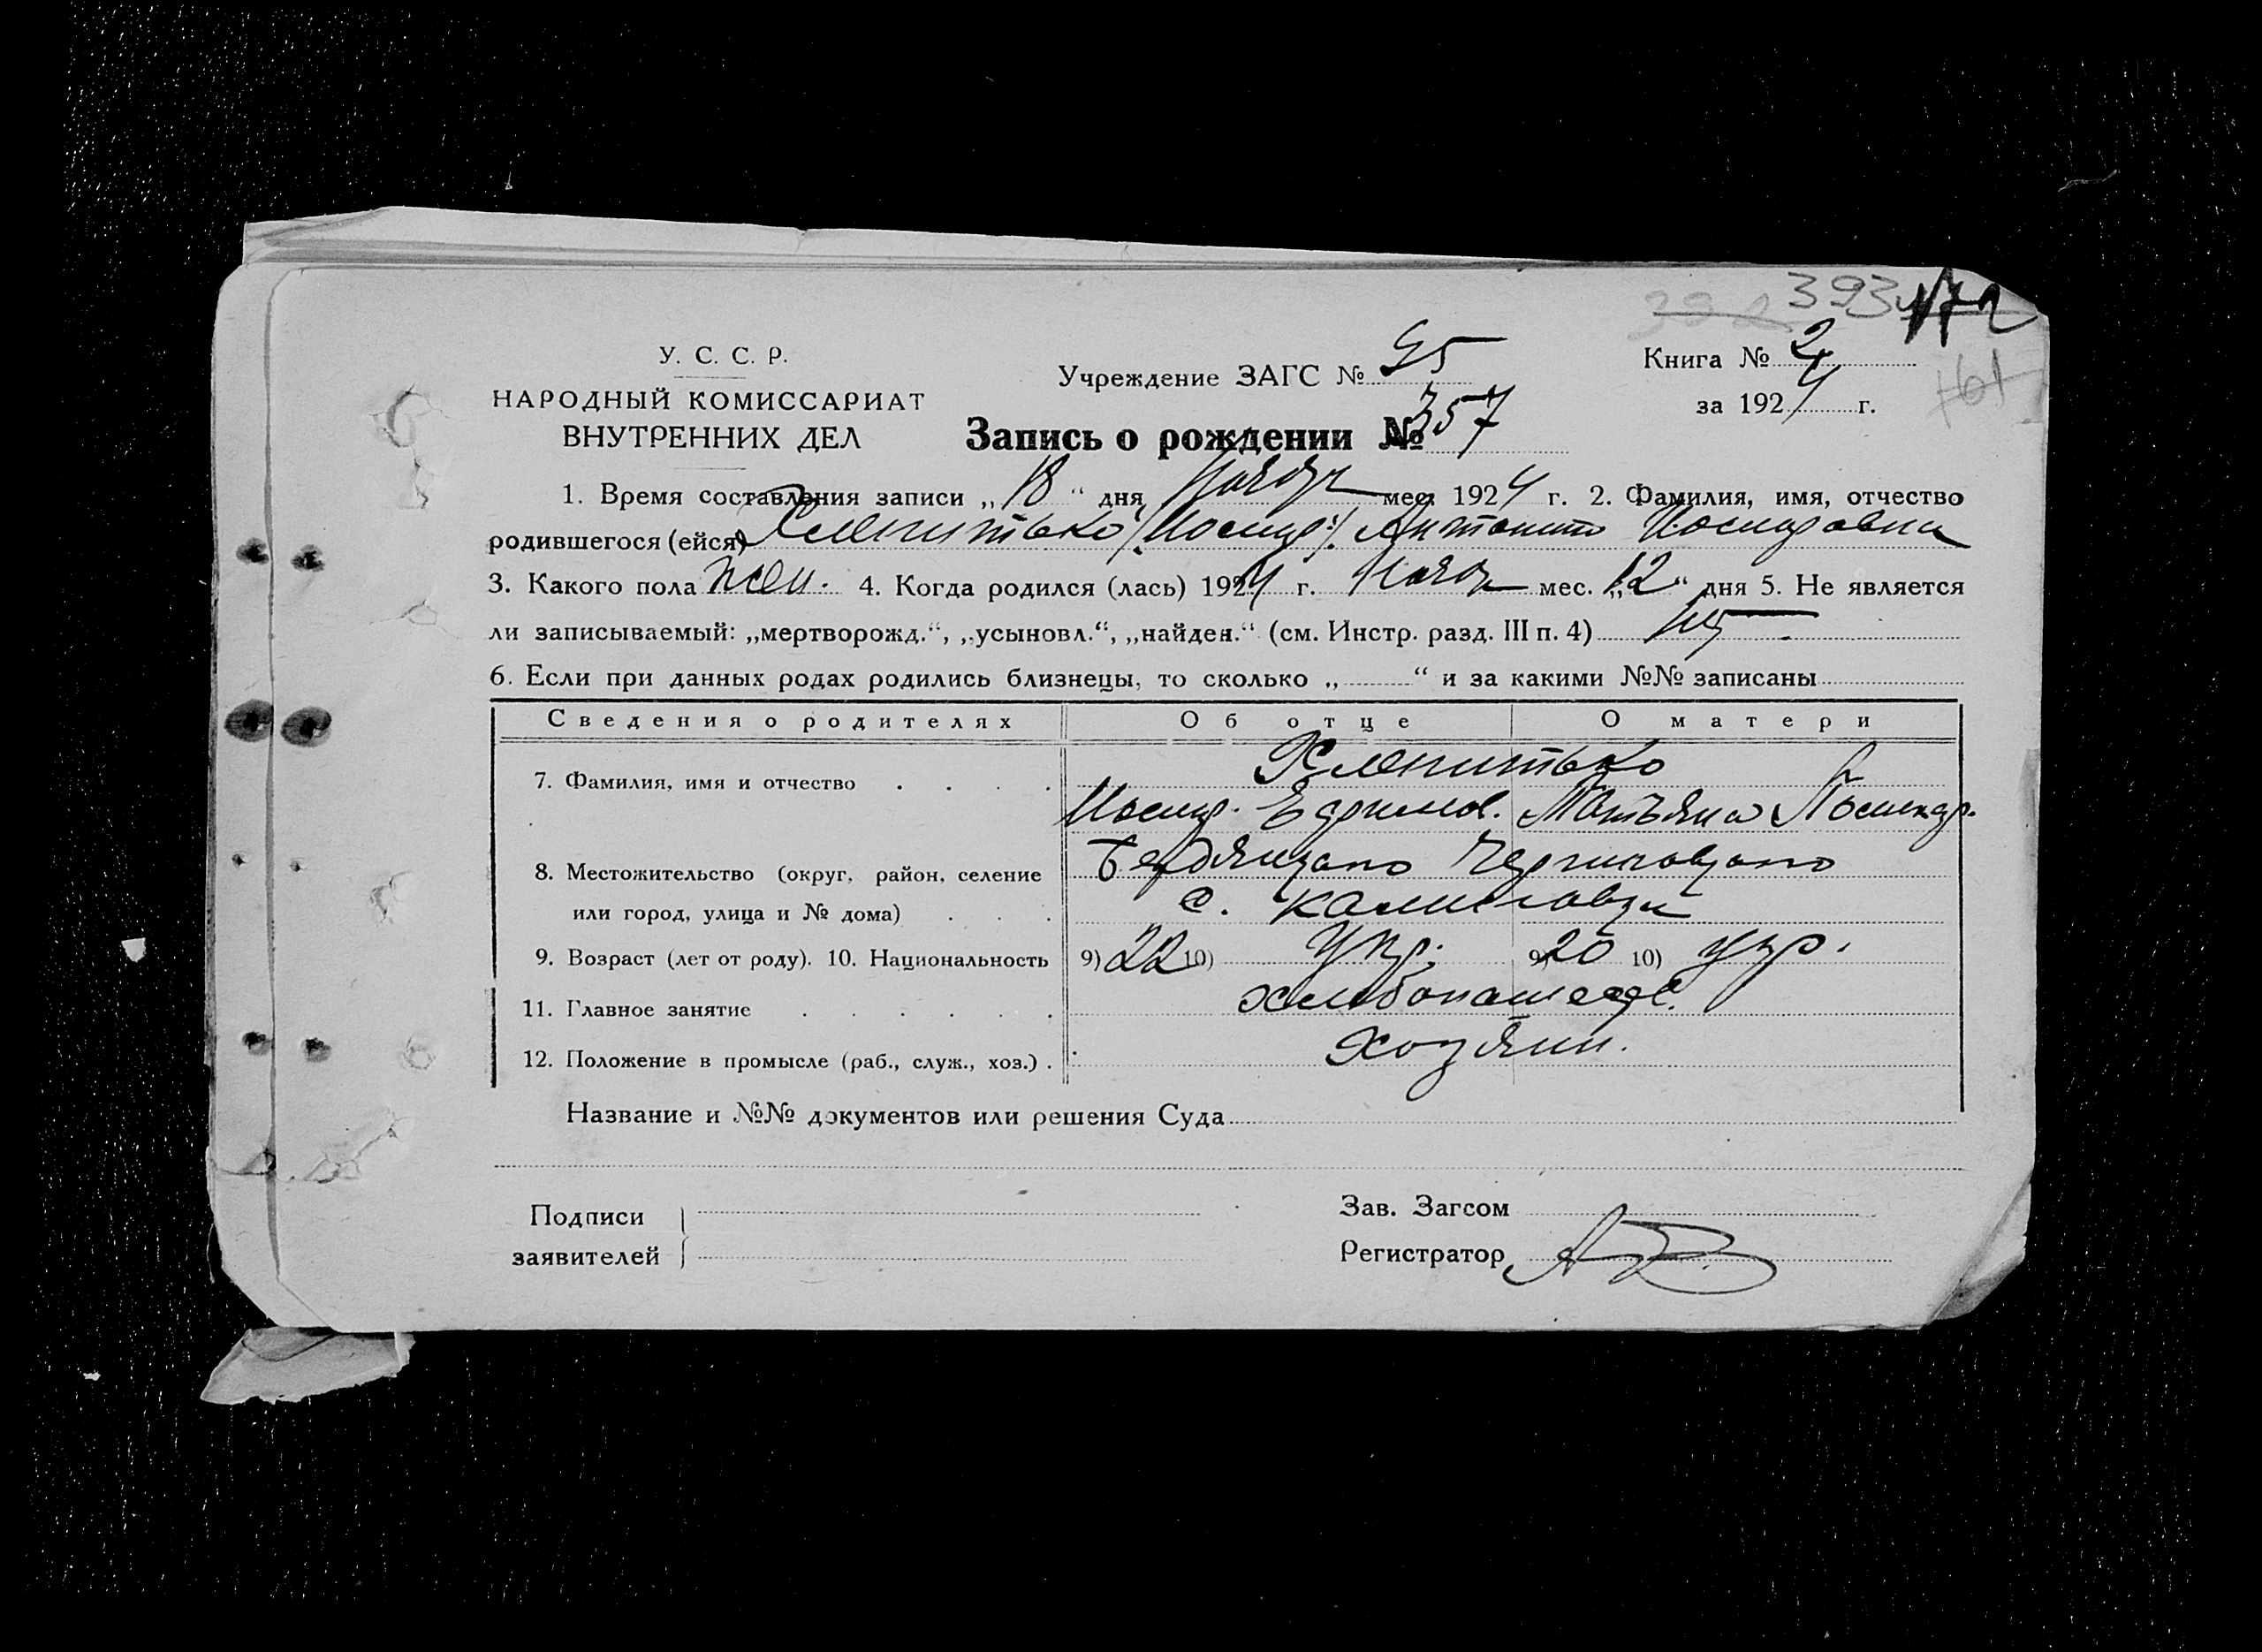 393 172
У. С. С. Р.
НАРОДНЫЙ КОМИССАРИАТ
ВНУТРЕННИХ ДЕЛ
Учреждение ЗАГС № 95
Книга № 2
за 1924 г.
161
Запись о рождении № 357
1. Время составления записи „18“ дня Ноября мес. 1924 г. 2. Фамилия, имя, отчество
родившегося (ейся) Хленитько Антонина Иосифовна
3. Какого пола жен. 4. Когда родился (лась) 1924 г. Нояб мес. „12“ дня 5. Не является
ли записываемый: „мертворожд.“, „усыновл.“, „найден.“ (см. Инстр. разд. III п. 4) нет
6. Если при данных родах родились близнецы, то сколько „ “ и за какими №№ записаны
Сведения о родителях Об отце О матери
Хленитько
7. Фамилия, имя и отчество . . . .
Иосиф. Ефимов. Татьяна
Бердянского Черниговского
8. Местожительство (округ, район, селение
или город, улица и № дома) . . .
с. Калиновки
9. Возраст (лет от роду). 10. Национальность 9) 22 10) Укр. 9) 20 10) укр.
11. Главное занятие . . . . . . хлебопашед.
12. Положение в промысле (раб., служ., хоз.) . Хозяин.
Название и №№ документов или решения Суда
Подписи
заявителей
Зав. Загсом
Регистратор